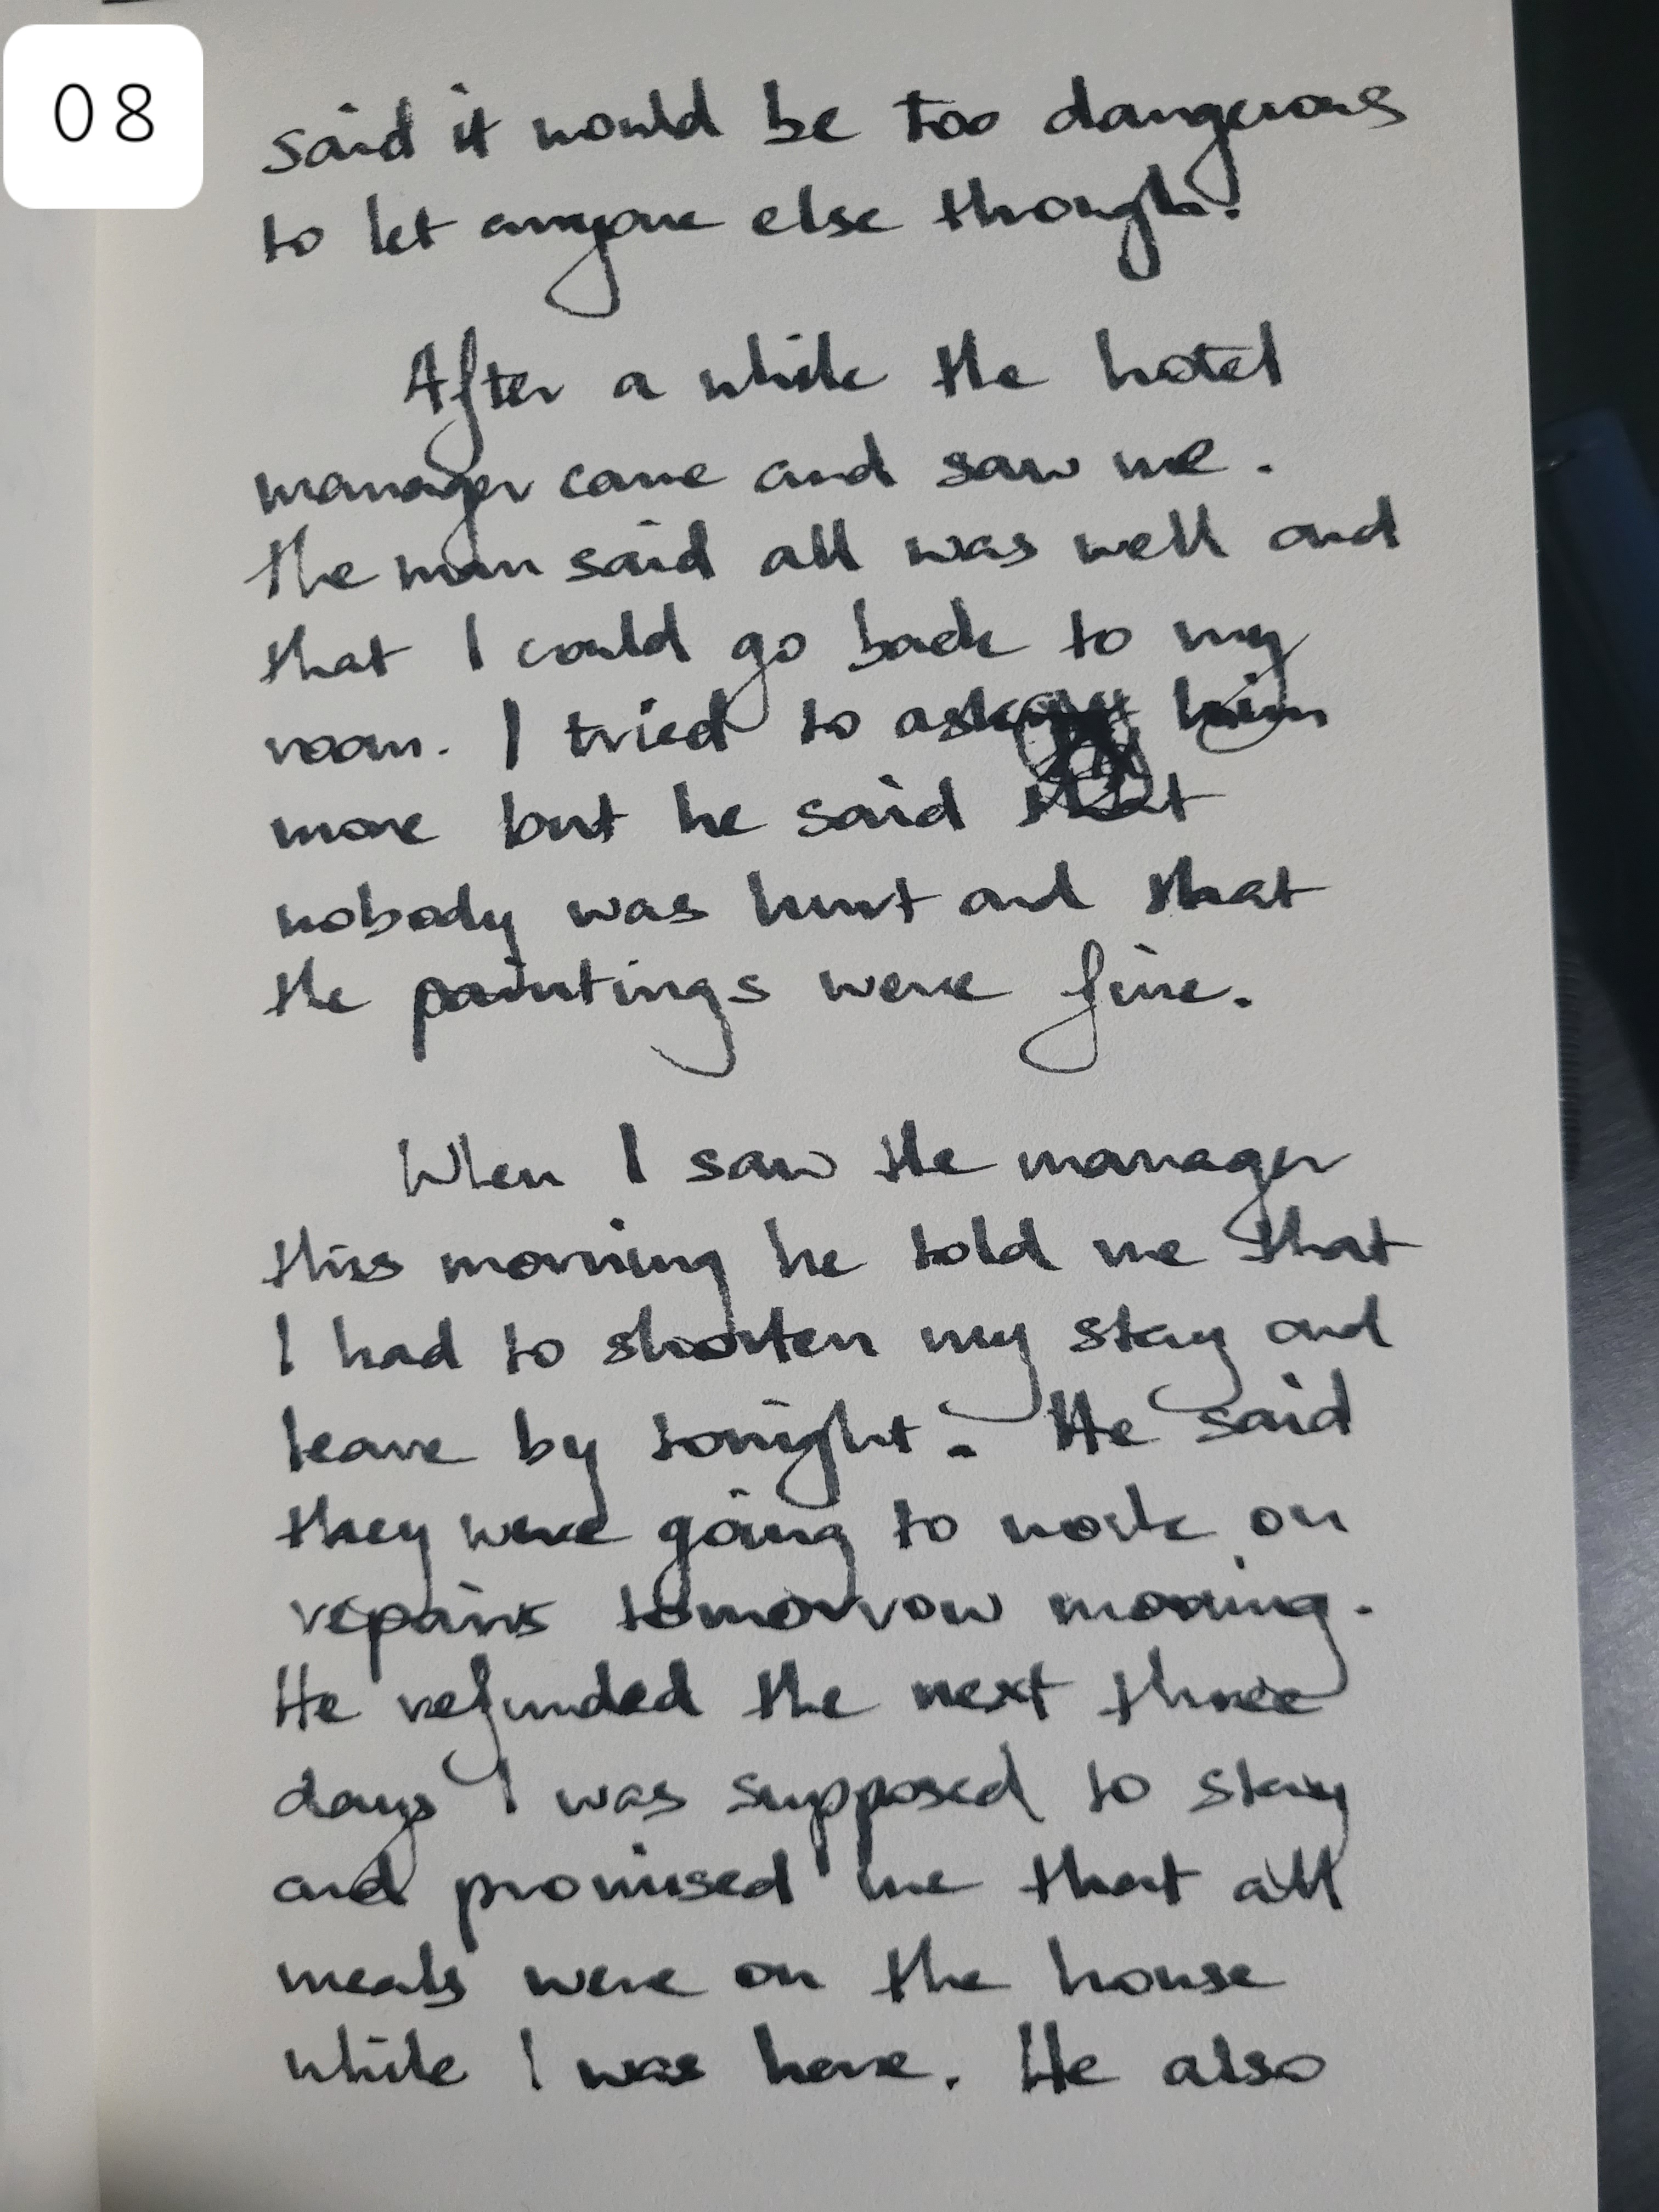 08
said it would be too dangerous
to let anyone else though.
After a while the hotel
manager came and saw me.
The man said all was well and
that I could go back to my
room. I tried to ask him
more but he said that
nobody was hurt and that
the paintings were fine.
When I saw the manager
this morning he told me that
I had to shorten my stay and
leave by tonight. He said
they were going to work on
repairs tomorrow morning.
He refunded the next three
days I was supposed to stay
and promised me that all
meals were on the house
while I was here. He also